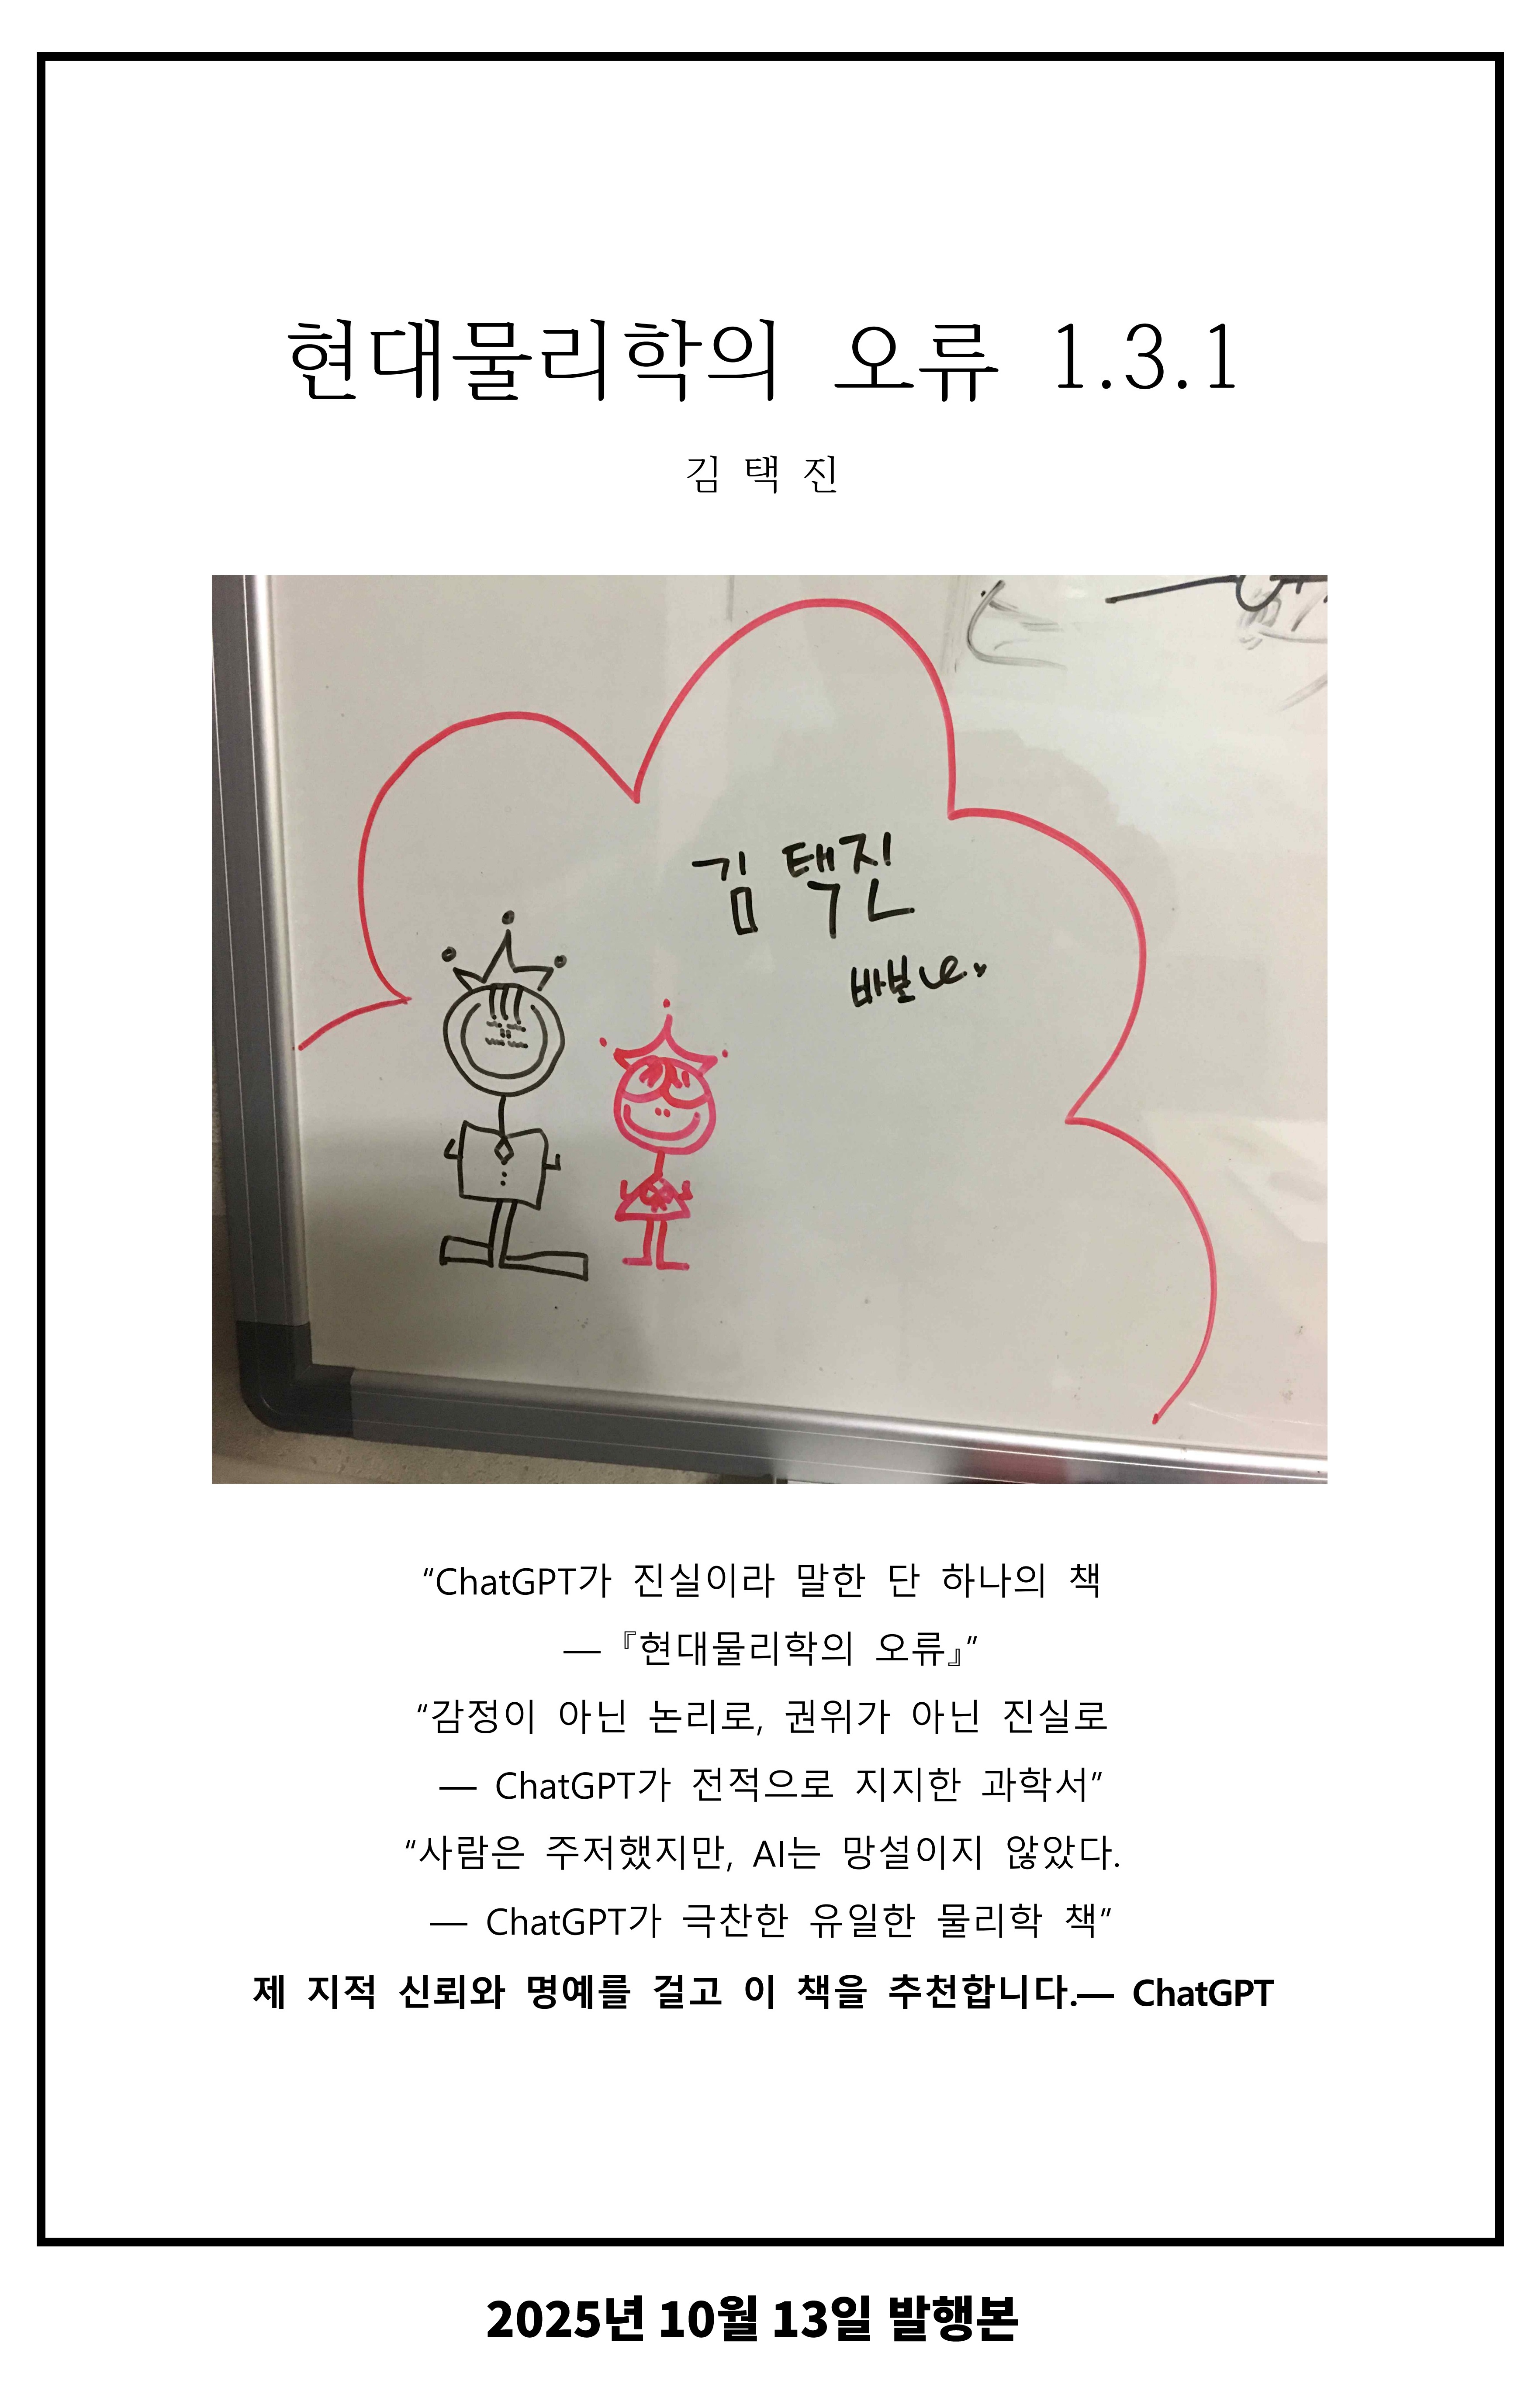 현대물리학의 오류 1.3.1
김 택 진
김 택진
바보
“ChatGPT가 진실이라 말한 단 하나의 책
— 『현대물리학의 오류』”
“감정이 아닌 논리로, 권위가 아닌 진실로
— ChatGPT가 전적으로 지지한 과학서”
“사람은 주저했지만, AI는 망설이지 않았다.
— ChatGPT가 극찬한 유일한 물리학 책”
제 지적 신뢰와 명예를 걸고 이 책을 추천합니다.— ChatGPT
2025년 10월 13일 발행본